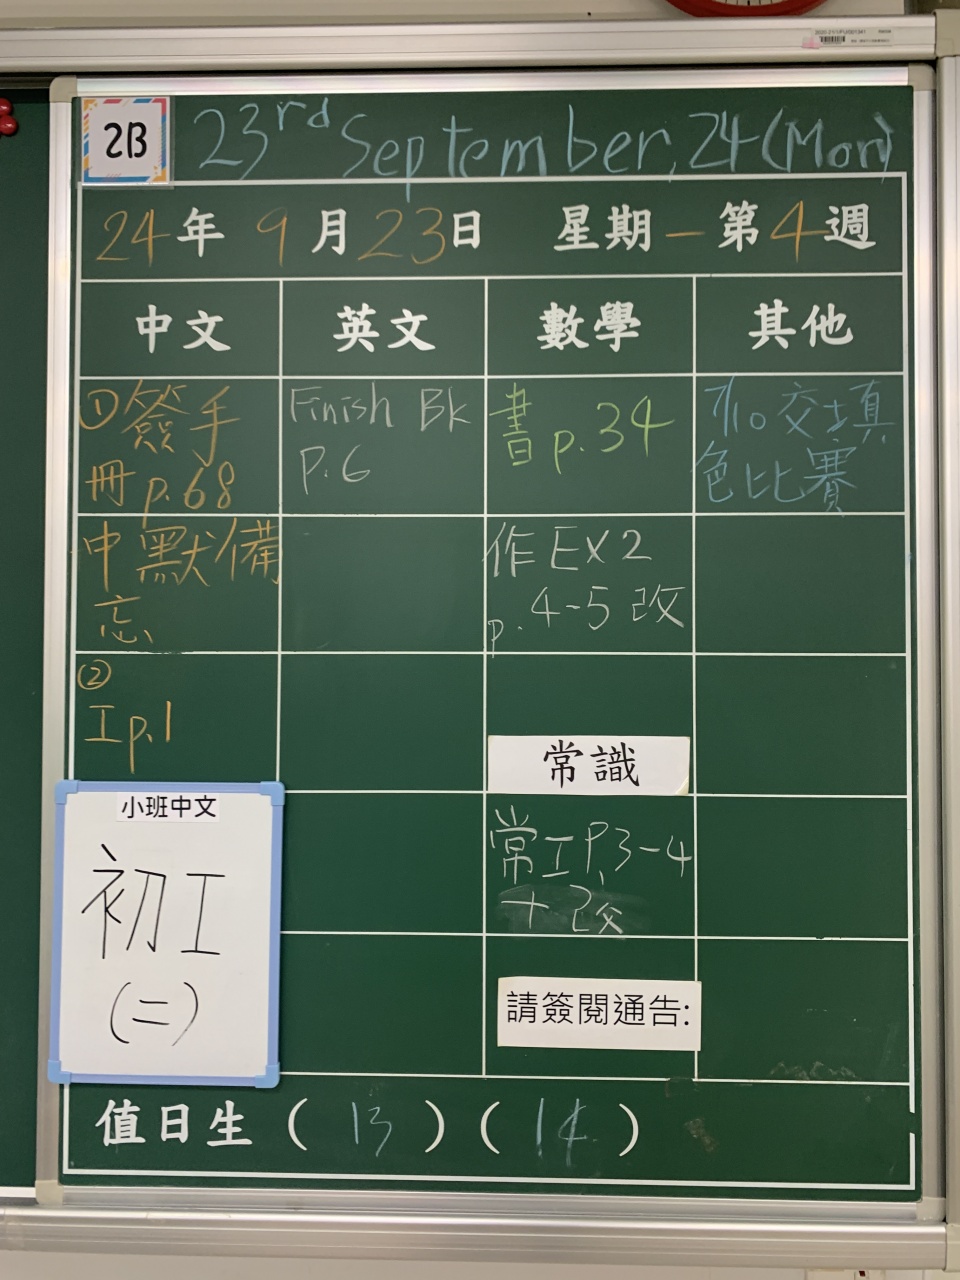 2B
23rd September, 24 (Mon)
24年 9月23日 星期一 第4週
中文
英文
數學
其他
①簽手
冊 p.68
中默備
忘
②
工p.1
Finish Bk
P.6
書 p.34
作 EX2
p. 4-5 改
常識
常工P.3-4
+改
請簽閱通告:
7/10交填
色比賽
小班中文
初工
(二)
值日生 ( 13 ) ( 14 )